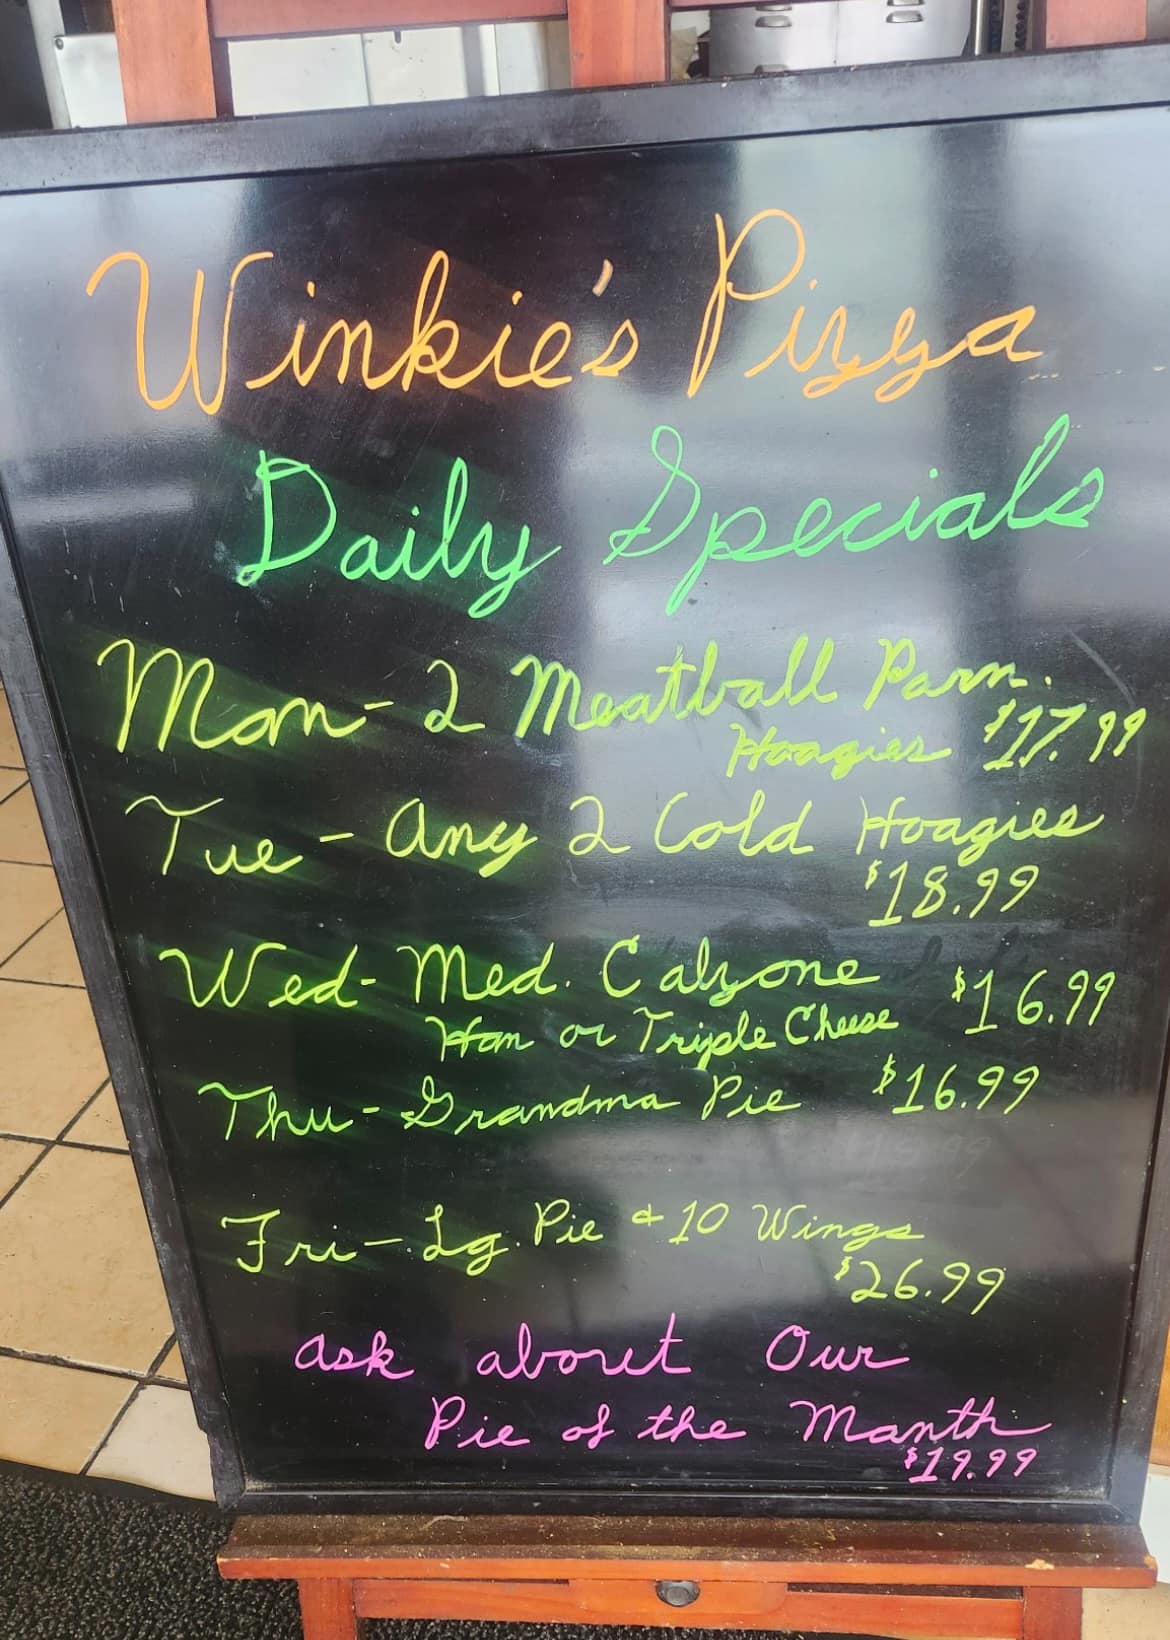 Winkie's Pizza
Daily Specials
Mon - 2 Meatball Parm.
Hoagies $17.99
Tue - Any 2 Cold Hoagies
$18.99
Wed - Med. Calzone $16.99
Ham or Triple Cheese
Thu - Grandma Pie $16.99
Fri - Lg. Pie & 10 Wings
$26.99
Ask about Our
Pie of the Month
$19.99